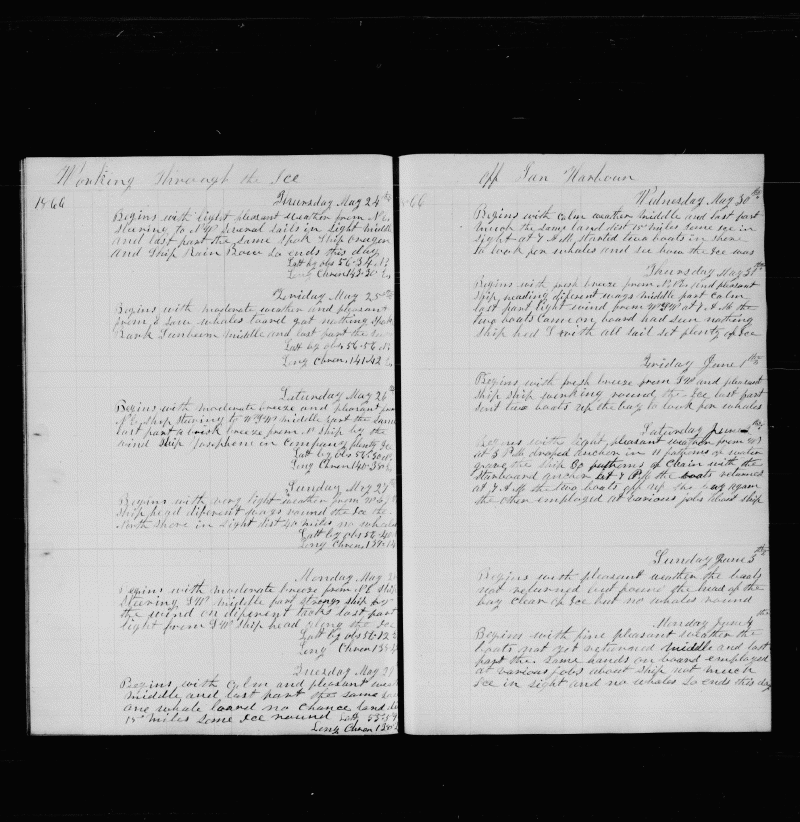 Working Through the Ice
1866
Thursday May 24th
Begins with light pleasant weather from N.E.
Stearing to N.W. several sails in sight middle
and last part the same Spok Ship oregon
and Ship Rain Bow So ends this day
Latt by obs 56-34 N
Long Chron 143-30 E
Friday May 25th
Begins with moderate weather and pleasant
from saw whales lowerd got nothing Spok
Bark middle and last part the
Latt by obs 56-56 N
Long Chron 141-42 E
Saturday May 26th
Begins with moderate breeze and pleasant from
N.E. Ship Stearing to W.S.W. middle part the same
last part a brisk breeze from N Ship by the
wind Ship Josephene in company plenty Ice
Latt by obs 56-30 N
Long Chron 140-38 E
Sunday May 27th
Begins with very light weather from
Ship head different ways round the Ice the
North Shore in Sight dist 40 miles no whales
Latt by obs 56-20
Long Chron 139-14
Monday May 28
Begins with moderate breeze from N.E. Ship
Stearing S.W. middle part strong ship by
the wind on diferent tacks last part
light from S.W. Ship head along the Ice
Latt by obs 56-12
Long Chron 138-
Tuesday May 29
Begins with Calm and pleasant weather
middle and last part the same saw
one whale lowerd no chance land dist
15 miles Some Ice round Latt 55-
Long Chron 138-
off Jan Harbour
66
Wednesday May 30th
Begins with calm weather middle and last part
much the same land dist 15 miles some ice in
sight at 7 A.M. started two boats in shore
to look for whales and see how the Ice was
Thursday May 31th
Begins with fresh breeze from and pleasant
Ship heading diferent ways middle part calm
last part light wind from W.S.W. at 7 A.M. the
two boats came on board had seen nothing
Ship hed S with all sail set plenty of Ice
Friday June 1th
Begins with fresh breeze from S.W. and pleasant
Ship working round the Ice last part
Sent two boats up the bay to look for whales
Saturday June 2th
Begins with light pleasant weather from
at 3 P.M. droped anchor in 11 fathoms of water
gave the ship 60 fathoms of chain with the
Starboard ancor at 7 P.M. the boats returned
at 7 A.M. the two boats off up the bay again
the other employed at various jobs about ship
Sunday June 3th
Begins with pleasant weather the boats
not returned but found the head of the
bay clear of Ice but no whales round
Monday June 4th
Begins with fine pleasant weather the
boats not yet returned middle and last
part the same hands on board employed
at various jobs about Ship not much
Ice in sight and no whales So ends this day